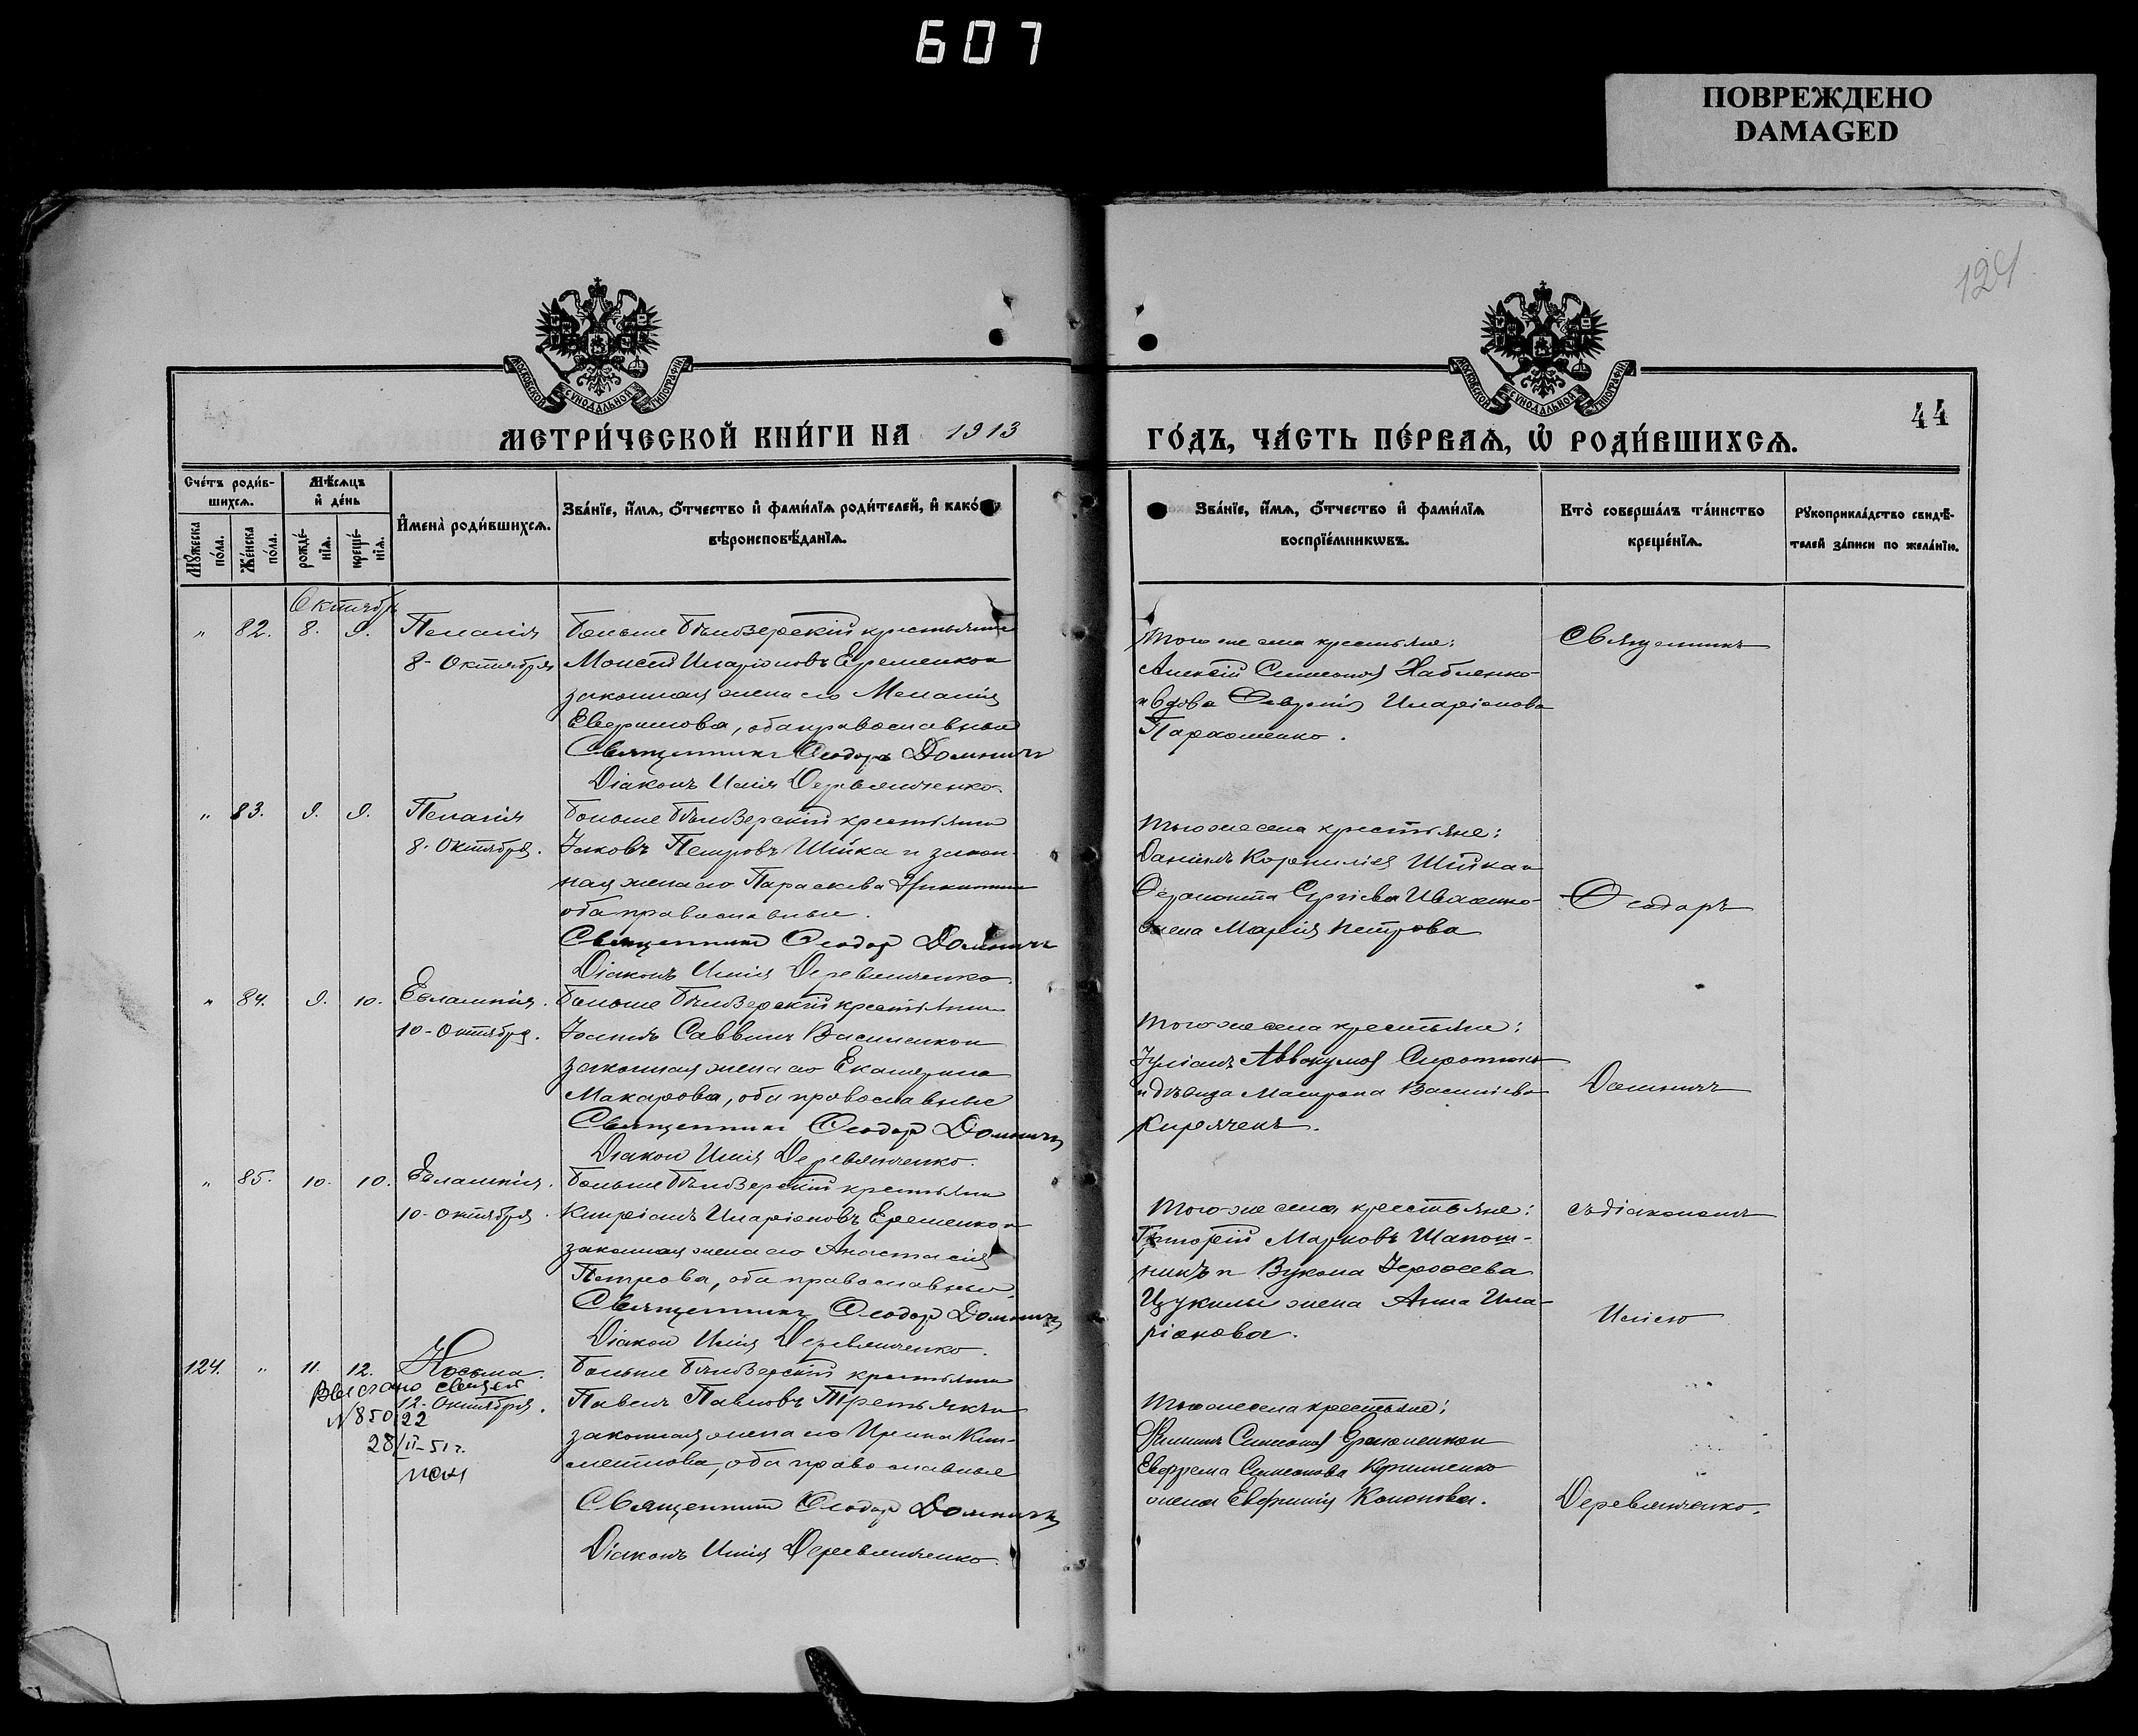 607
ПОВРЕЖДЕНО
DAMAGED
124
МОСКОВСКОЙ СѴНОДАЛЬНОЙ ТИПОГРАФІИ
МОСКОВСКОЙ СѴНОДАЛЬНОЙ ТИПОГРАФІИ
44
МЕТРИ́ЧЕСКОЙ КНИ́ГИ НА 1913
ГО́ДЪ, ЧА́СТЬ ПЕ́РВАѦ, Ѡ҆ РОДИ́ВШИХСѦ.
Сче́тъ роди́в-
шихсѧ.
Мꙋ́жеска по́ла.
Же́нска по́ла.
Мѣ́сѧцъ
и҆ де́нь
рожде́-
нїѧ.
креще́-
нїѧ.
И҆мена̀ роди́вшихсѧ.
Зва́нїе, и҆́мѧ, ѻ҆́тчество и҆ фами́лїѧ роди́телей, и҆ како́
вѣроисповѣ́данїѧ.
Зва́нїе, и҆́мѧ, ѻ҆́тчество и҆ фами́лїѧ
воспрїе́мникѡвъ.
Кто̀ соверша́лъ та́инство
креще́нїѧ.
Рꙋкоприкла́дство свидѣ́-
телей за́писи по жела́нїю.
Октябрь
" 82. 8. 9. Пелагія
8-Октября
Больше Бѣлозерскій крестьянинъ
Моисей Иларіоновъ Еременко и
законная жена его Меланія
, оба православные
Священникъ Ѳеодоръ Домничъ
Діаконъ Илія Деревянченко.
Того же села крестьяне:
Алексій Симеоновъ Хабленко
и вдова Иларіонова
Пархоменко.
Священникъ
" 83. 9. 9. Пелагія
8-Октября.
Больше Бѣлозерскій крестьянинъ
Іаковъ Петровъ Шійка и закон-
ная жена его Параскева
оба православные.
Священникъ Ѳеодоръ Домничъ
Діаконъ Илія Деревянченко.
Того же села крестьяне:
Даніилъ Корниліевъ Шійка и
Сергіева Иващенко
жена Марія Петрова
Ѳеодоръ
" 84. 9. 10. Евлампія.
10-Октября.
Больше Бѣлозерскій крестьянинъ
Іоаннъ Саввинъ Василенко и
законная жена его Екатерина
Макарова, оба православные
Священникъ Ѳеодоръ Домничъ
Діаконъ Илія Деревянченко.
Того же села крестьяне:
Іуліанъ Аввакумовъ
и дѣвица Матрона Василіева
Домничъ
" 85. 10. 10. Евлампія.
10-Октября.
Больше Бѣлозерскій крестьянинъ
Кипріанъ Иларіоновъ Еременко и
законная жена его Анастасія
Петрова, оба православные
Священникъ Ѳеодоръ Домничъ
Діаконъ Илія Деревянченко.
Того же села крестьяне:
Григорій Марковъ Шапош-
никъ и Вукола Іероѳеева
жена Анна Ила-
ріонова.
съ діакономъ
Иліею
124. " 11. 12. Косьма.
12-Октября.
Выслано
N 850/22
28/II-51 г.
Больше Бѣлозерскій крестьянинъ
Павелъ Павловъ Третьякъ и
законная жена его Ирина Кли-
ментова, оба православные
Священникъ Ѳеодоръ Домничъ
Діаконъ Илія Деревянченко.
Того же села крестьяне:
Филиппъ Симеоновъ
Симеонова
жена Евфимія Кононова.
Деревянченко.